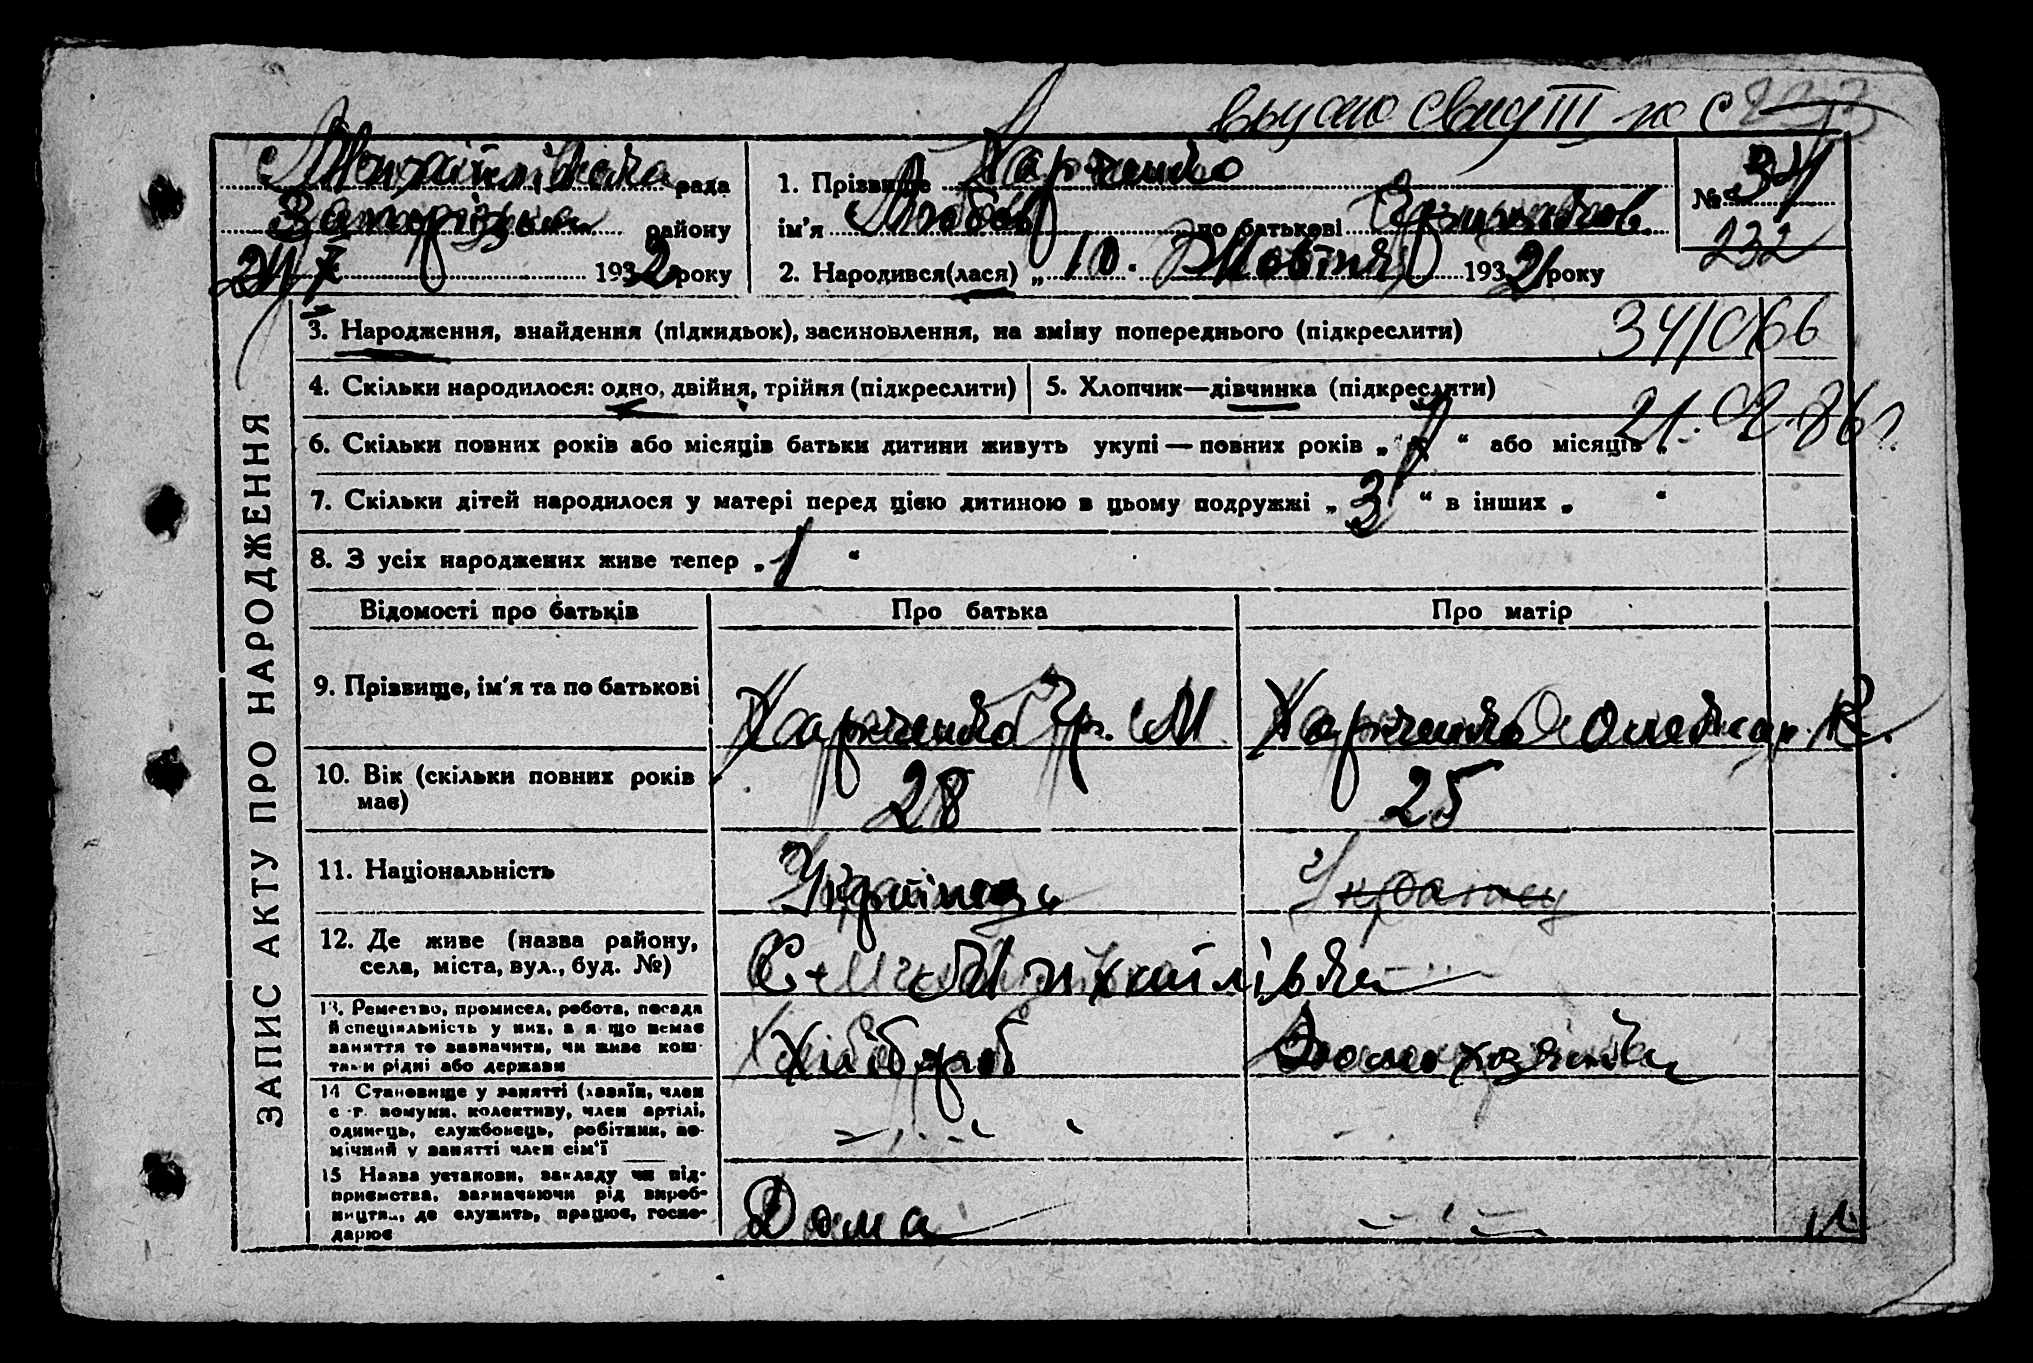 Михайлівська рада
Запорізьк району
1932 року
1. Прізвище Харченко
ім'я Любов по батькові
2. Народився(лася) „10. Жовтня 1932 року
№ 34
232
3. Народження, знайдення (підкидьок), засиновлення, на зміну попереднього (підкреслити)
4. Скільки народилося: одно, двійня, трійня (підкреслити)
5. Хлопчик—дівчинка (підкреслити)
6. Скільки повних років або місяців батьки дитини живуть укупі — повних років „ “ або місяців „
7. Скільки дітей народилося у матері перед цією дитиною в цьому подружжі „3“ в інших „ “
8. З усіх народжених живе тепер „1“
ЗАПИС АКТУ ПРО НАРОДЖЕННЯ
Відомості про батьків Про батька Про матір
9. Прізвище, ім'я та по батькові Харченко Гр. М Харченко Олександр. К.
10. Вік (скільки повних років має) 28 25
11. Національність Українець
12. Де живе (назва району, села, міста, вул., буд. №) С. Михайлівка
13. Ремество, промисел, робота, посада
й спеціяльність у них, а як що немає
заняття то зазначити, чи живе кош-
тами рідні або держави
Хлібороб Домохазяйка
14 Становище у занятті (хазяїн, член
с.-г. комуни, колективу, член артілі,
одинець, службовець, робітник, по-
мічний у занятті член сім'ї
15 Назва установи, закладу чи під-
приємства, зазначаючи рід вироб-
ництва, де служить, працює, госпо-
дарює
Дома